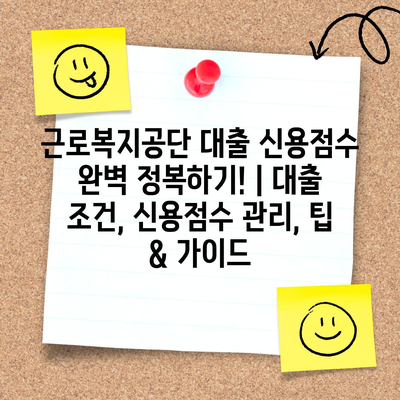 근로복지공단 대출 신용점수
완벽 정복하기! | 대출
조건, 신용점수 관리, 팁
& 가이드